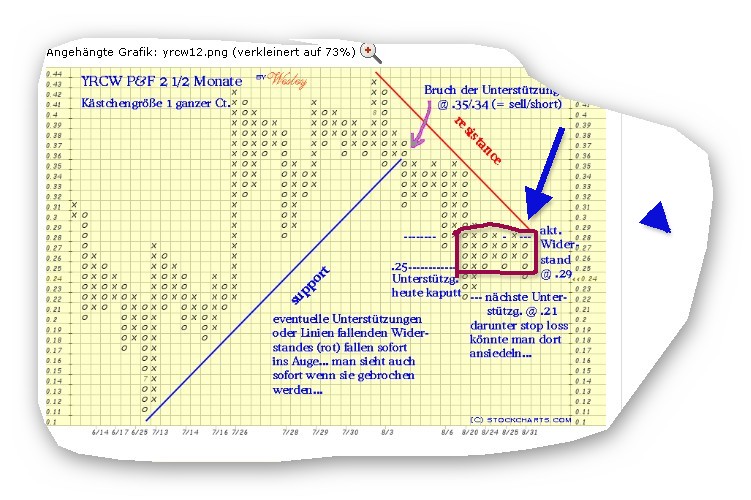 Angehängte Grafik: yrcw12.png (verkleinert auf 73%)
YRCW P&F 2 1/2 Monate BY Wesley
Kästchengröße 1 ganzer Ct.
Bruch der Unterstützung
@ .35/.34 (= sell/short)
resistance
akt.
Wider-
stand
@ .29
.25
Unterstützg.
heute kaputt
support
--- nächste Unter-
stützg. @ .21
darunter stop loss
könnte man dort
ansiedeln...
eventuelle Unterstützungen
oder Linien fallenden Wider-
standes (rot) fallen sofort
ins Auge... man sieht auch
sofort wenn sie gebrochen
werden...
(C) STOCKCHARTS.COM
0.44
0.43
0.42
0.41
0.4
0.39
0.38
0.37
0.36
0.35
0.34
0.33
0.32
0.31
0.3
0.29
0.28
0.27
0.26
0.25
0.24
0.23
0.22
0.21
0.2
0.19
0.18
0.17
0.16
0.15
0.14
0.13
0.12
0.11
0.1
6/14 6/17 6/25 7/13 7/14 7/16 7/26 7/28 7/29 7/30 8/3 8/6 8/20 8/24 8/25 8/31